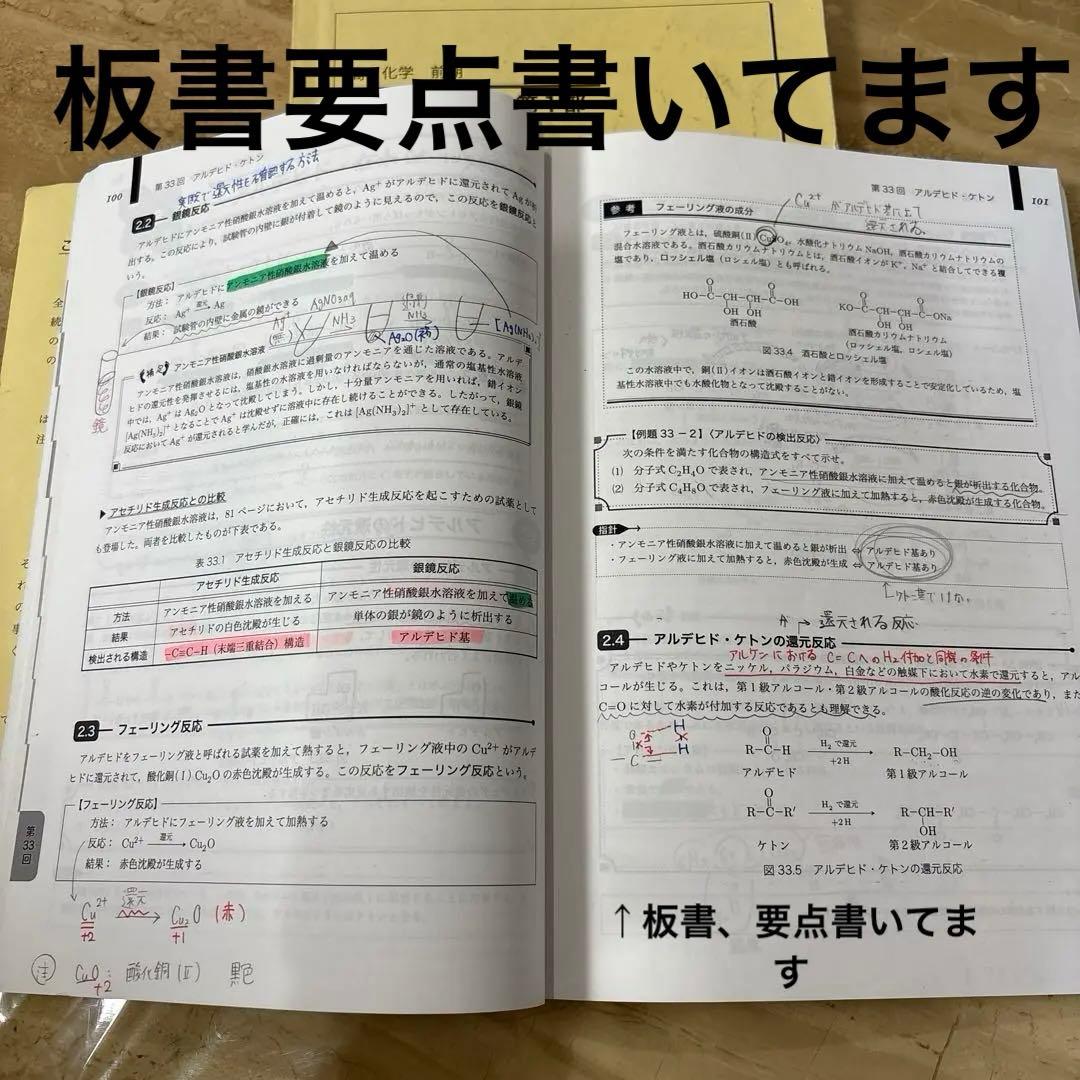 板書要点書いてます
化学 前期
100
第33回 アルデヒド・ケトン
実際で還元性を確認する方法
2.2 銀鏡反応
アルデヒドにアンモニア性硝酸銀水溶液を加えて温めると，Ag⁺がアルデヒドに還元されてAgが析
出する。この反応により，試験管の内壁に銀が付着して鏡のように見えるので，この反応を銀鏡反応と
いう。
【銀鏡反応】
方法： アルデヒドにアンモニア性硝酸銀水溶液を加えて温める
反応： Ag⁺ 還元→ Ag
結果： 試験管の内壁に金属の鏡ができる
AgNO₃aq
Ag⁺
NH₃
NH₃
Ag₂O(褐)
鏡
《補足》 アンモニア性硝酸銀水溶液
アンモニア性硝酸銀水溶液は，硝酸銀水溶液に過剰量のアンモニアを通じた溶液である。アルデ
ヒドの還元性を発揮させるには，塩基性の水溶液を用いなければならないが，通常の塩基性水溶液
中では，Ag⁺はAg₂Oとなって沈殿してしまう。しかし，十分量アンモニアを用いれば，錯イオン
[Ag(NH₃)₂]⁺となることでAg⁺は沈殿せずに溶液中に存在し続けることができる。したがって，銀鏡
反応においてAg⁺が還元されると学んだが，正確には，これは[Ag(NH₃)₂]⁺として存在している。
▶アセチリド生成反応との比較
アンモニア性硝酸銀水溶液は，81ページにおいて，アセチリド生成反応を起こすための試薬として
も登場した。両者を比較したものが下表である。
表 33.1 アセチリド生成反応と銀鏡反応の比較
アセチリド生成反応 銀鏡反応
方法 アンモニア性硝酸銀水溶液を加える アンモニア性硝酸銀水溶液を加えて温める
結果 アセチリドの白色沈殿が生じる 単体の銀が鏡のように析出する
検出される構造 −C≡C−H（末端三重結合）構造 アルデヒド基
2.3 フェーリング反応
アルデヒドをフェーリング液と呼ばれる試薬を加えて熱すると，フェーリング液中のCu²⁺がアルデ
ヒドに還元されて，酸化銅(Ⅰ)Cu₂Oの赤色沈殿が生成する。この反応をフェーリング反応という。
【フェーリング反応】
方法： アルデヒドにフェーリング液を加えて加熱する
反応： Cu²⁺ 還元→ Cu₂O
結果： 赤色沈殿が生成する
第33回
Cu²⁺ 還元→ Cu₂O (赤)
+2 +1
注 CuO： 酸化銅(Ⅱ) 黒色
+2
第33回 アルデヒド・ケトン
101
Cu²⁺
還元される。
参考 フェーリング液の成分
フェーリング液とは，硫酸銅(Ⅱ)CuSO₄，水酸化ナトリウムNaOH，酒石酸カリウムナトリウムの
混合水溶液である。酒石酸カリウムナトリウムとは，酒石酸イオンがK⁺，Na⁺と結合してできる複
塩であり，ロッシェル塩（ロシェル塩）とも呼ばれる。
O O
HO−C−CH−CH−C−OH
OH OH
酒石酸
O O
KO−C−CH−CH−C−ONa
OH OH
酒石酸カリウムナトリウム
（ロッシェル塩，ロシェル塩）
図 33.4 酒石酸とロッシェル塩
この水溶液中で，銅(Ⅱ)イオンは酒石酸イオンと錯イオンを形成することで安定化しているため，塩
基性水溶液中でも水酸化物となって沈殿することがない。
【例題 33－2】〈アルデヒドの検出反応〉
次の条件を満たす化合物の構造式をすべて示せ。
(1) 分子式C₂H₄Oで表され，アンモニア性硝酸銀水溶液に加えて温めると銀が析出する化合物。
(2) 分子式C₄H₈Oで表され，フェーリング液に加えて加熱すると，赤色沈殿が生成する化合物。
指針
・アンモニア性硝酸銀水溶液に加えて温めると銀が析出 ⇔ アルデヒド基あり
・フェーリング液に加えて加熱すると，赤色沈殿が生成 ⇔ アルデヒド基あり
→ 還元される反応
2.4 アルデヒド・ケトンの還元反応
アルケンにおける C=CへのH₂付加と同様の条件
アルデヒドやケトンをニッケル，パラジウム，白金などの触媒下において水素で還元すると，アル
コールが生じる。これは，第1級アルコール・第2級アルコールの酸化反応の逆の変化であり，また
C=Oに対して水素が付加する反応であるとも理解できる。
O H
C H
O
R−C−H H₂で還元→ R−CH₂−OH
+2H
アルデヒド 第1級アルコール
O
R−C−R′ H₂で還元→ R−CH−R′
+2H OH
ケトン 第2級アルコール
図 33.5 アルデヒド・ケトンの還元反応
↑板書、要点書いてま
す